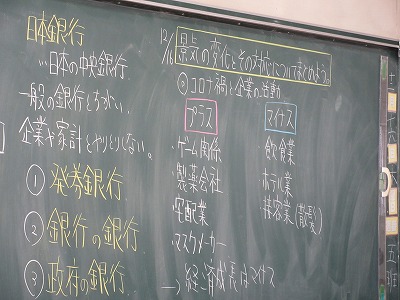 日本銀行
…日本の中央銀行
一般の銀行とちがい、
企業や家計とやりとりしない。
① 発券銀行
② 銀行の銀行
③ 政府の銀行
12/16 景気の変化とその対応についてまとめよう。
◎コロナ禍と企業の運動
プラス
・ゲーム関係
・製薬会社
・宅配業
・マスクメーカー
マイナス
・飲食業
・ホテル業
・接客業(散髪)
→ 経済成長はマイナス